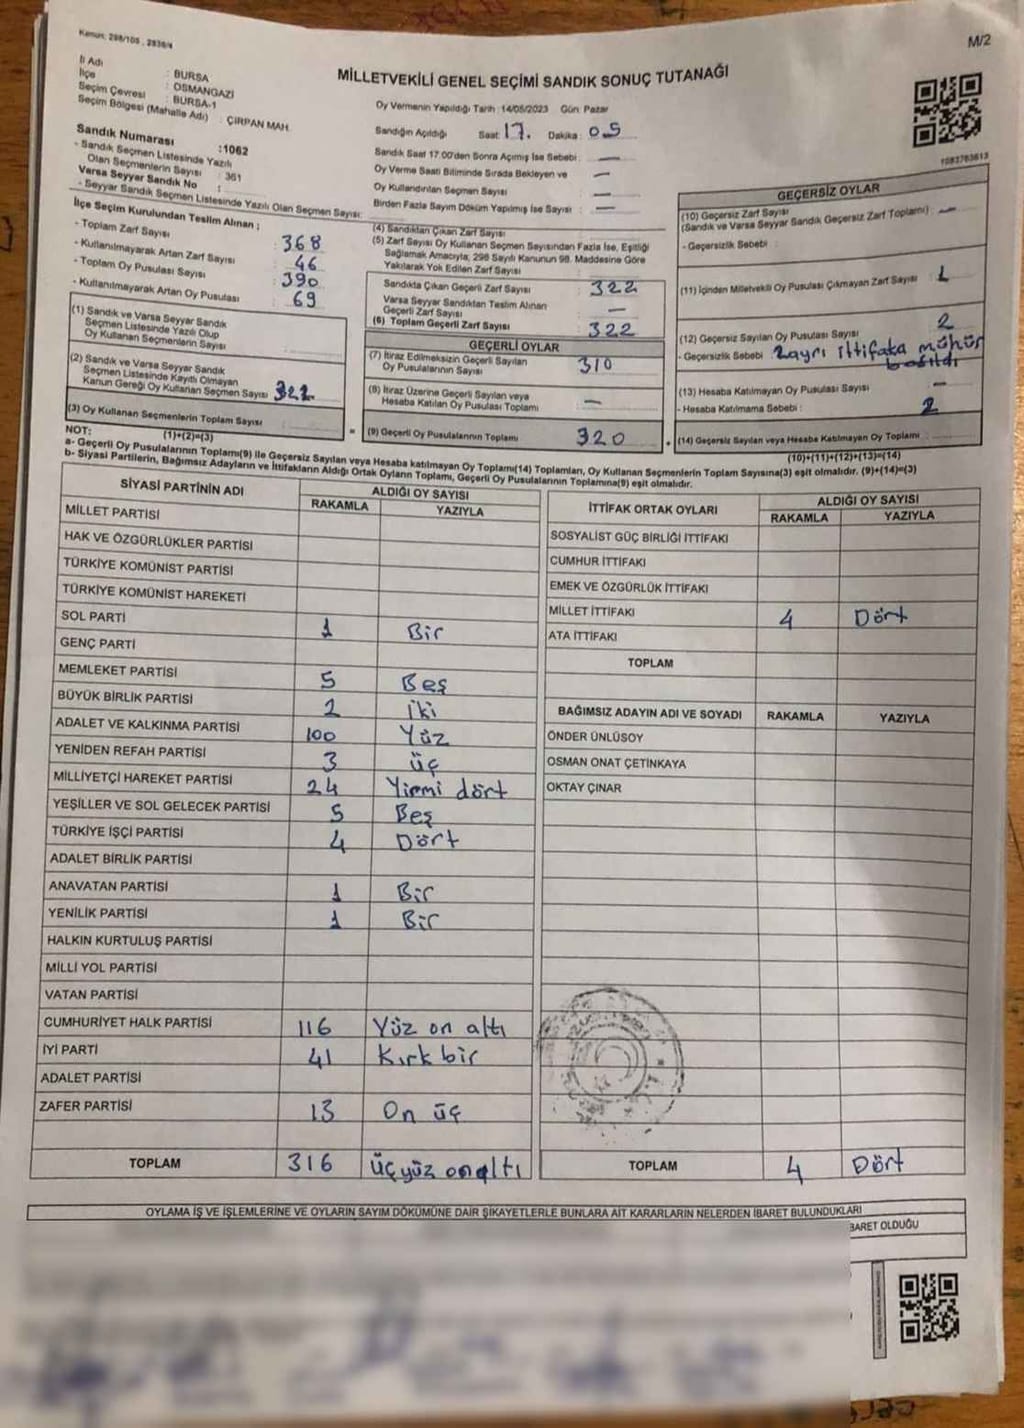 Kanun: 298/105, 2839/4
M/2
İl Adı : BURSA
İlçe : OSMANGAZİ
Seçim Çevresi : BURSA-1
Seçim Bölgesi (Mahalle Adı) : ÇIRPAN MAH.
MİLLETVEKİLİ GENEL SEÇİMİ SANDIK SONUÇ TUTANAĞI
Oy Vermenin Yapıldığı Tarih :14/05/2023 Gün: Pazar
Sandığın Açıldığı Saat: 17. Dakika: 05
Sandık Saat 17.00'den Sonra Açımış İse Sebebi: —
Oy Verme Saati Bitiminde Sırada Bekleyen ve —
Oy Kullandırılan Seçmen Sayısı —
Birden Fazla Sayım Döküm Yapılmış İse Sayısı : —
Sandık Numarası :1062
- Sandık Seçmen Listesinde Yazılı
Olan Seçmenlerin Sayısı : 361
Varsa Seyyar Sandık No :
- Seyyar Sandık Seçmen Listesinde Yazılı Olan Seçmen Sayısı:
İlçe Seçim Kurulundan Teslim Alınan ;
- Toplam Zarf Sayısı : 368
- Kullanılmayarak Artan Zarf Sayısı : 46
- Toplam Oy Pusulası Sayısı : 390
- Kullanılmayarak Artan Oy Pusulası : 69
(1) Sandık ve Varsa Seyyar Sandık
Seçmen Listesinde Yazılı Olup
Oy Kullanan Seçmenlerin Sayısı
(2) Sandık ve Varsa Seyyar Sandık
Seçmen Listesinde Kayıtlı Olmayan
Kanun Gereği Oy Kullanan Seçmen Sayısı 322
(3) Oy Kullanan Seçmenlerin Toplam Sayısı
(1)+(2)=(3)
(4) Sandıktan Çıkan Zarf Sayısı :
(5) Zarf Sayısı Oy Kullanan Seçmen Sayısından Fazla İse, Eşitliği
Sağlamak Amacıyla, 298 Sayılı Kanunun 98. Maddesine Göre
Yakılarak Yok Edilen Zarf Sayısı :
Sandıkta Çıkan Geçerli Zarf Sayısı : 322
Varsa Seyyar Sandıktan Teslim Alınan
Geçerli Zarf Sayısı : —
(6) Toplam Geçerli Zarf Sayısı : 322
GEÇERLİ OYLAR
(7) İtiraz Edilmeksizin Geçerli Sayılan
Oy Pusulalarının Sayısı : 310
(8) İtiraz Üzerine Geçerli Sayılan veya
Hesaba Katılan Oy Pusulası Toplamı : —
(9) Geçerli Oy Pusulalarının Toplamı : 320
1083763613
GEÇERSİZ OYLAR
(10) Geçersiz Zarf Sayısı
(Sandık ve Varsa Seyyar Sandık Geçersiz Zarf Toplamı) : —
- Geçersizlik Sebebi :
(11) İçinden Milletvekili Oy Pusulası Çıkmayan Zarf Sayısı : 1
(12) Geçersiz Sayılan Oy Pusulası Sayısı : 2
- Geçersizlik Sebebi : 2 ayrı ittifaka mühür
basıldı
(13) Hesaba Katılmayan Oy Pusulası Sayısı : —
- Hesaba Katılmama Sebebi : 2
(14) Geçersiz Sayılan veya Hesaba Katılmayan Oy Toplamı :
(10)+(11)+(12)+(13)=(14)
NOT:
a- Geçerli Oy Pusulalarının Toplamı(9) ile Geçersiz Sayılan veya Hesaba katılmayan Oy Toplamı(14) Toplamları, Oy Kullanan Seçmenlerin Toplam Sayısına(3) eşit olmalıdır. (9)+(14)=(3)
b- Siyasi Partilerin, Bağımsız Adayların ve İttifakların Aldığı Ortak Oyların Toplamı, Geçerli Oy Pusulalarının Toplamına(9) eşit olmalıdır.
SİYASİ PARTİNİN ADI ALDIĞI OY SAYISI
RAKAMLA YAZIYLA
MİLLET PARTİSİ
HAK VE ÖZGÜRLÜKLER PARTİSİ
TÜRKİYE KOMÜNİST PARTİSİ
TÜRKİYE KOMÜNİST HAREKETİ
SOL PARTİ 1 Bir
GENÇ PARTİ
MEMLEKET PARTİSİ 5 Beş
BÜYÜK BİRLİK PARTİSİ 2 iki
ADALET VE KALKINMA PARTİSİ 100 Yüz
YENİDEN REFAH PARTİSİ 3 üç
MİLLİYETÇİ HAREKET PARTİSİ 24 Yirmi dört
YEŞİLLER VE SOL GELECEK PARTİSİ 5 Beş
TÜRKİYE İŞÇİ PARTİSİ 4 Dört
ADALET BİRLİK PARTİSİ
ANAVATAN PARTİSİ 1 Bir
YENİLİK PARTİSİ 1 Bir
HALKIN KURTULUŞ PARTİSİ
MİLLİ YOL PARTİSİ
VATAN PARTİSİ
CUMHURİYET HALK PARTİSİ 116 Yüz on altı
İYİ PARTİ 41 Kırk bir
ADALET PARTİSİ
ZAFER PARTİSİ 13 On üç
TOPLAM 316 Üçyüz onaltı
İTTİFAK ORTAK OYLARI ALDIĞI OY SAYISI
RAKAMLA YAZIYLA
SOSYALİST GÜÇ BİRLİĞİ İTTİFAKI
CUMHUR İTTİFAKI
EMEK VE ÖZGÜRLÜK İTTİFAKI
MİLLET İTTİFAKI 4 Dört
ATA İTTİFAKI
TOPLAM
BAĞIMSIZ ADAYIN ADI VE SOYADI RAKAMLA YAZIYLA
ÖNDER ÜNLÜSOY
OSMAN ONAT ÇETİNKAYA
OKTAY ÇINAR
TOPLAM 4 Dört
OYLAMA İŞ VE İŞLEMLERİNE VE OYLARIN SAYIM DÖKÜMÜNE DAİR ŞİKAYETLERLE BUNLARA AİT KARARLARIN NELERDEN İBARET BULUNDUKLARI
BARET OLDUĞU